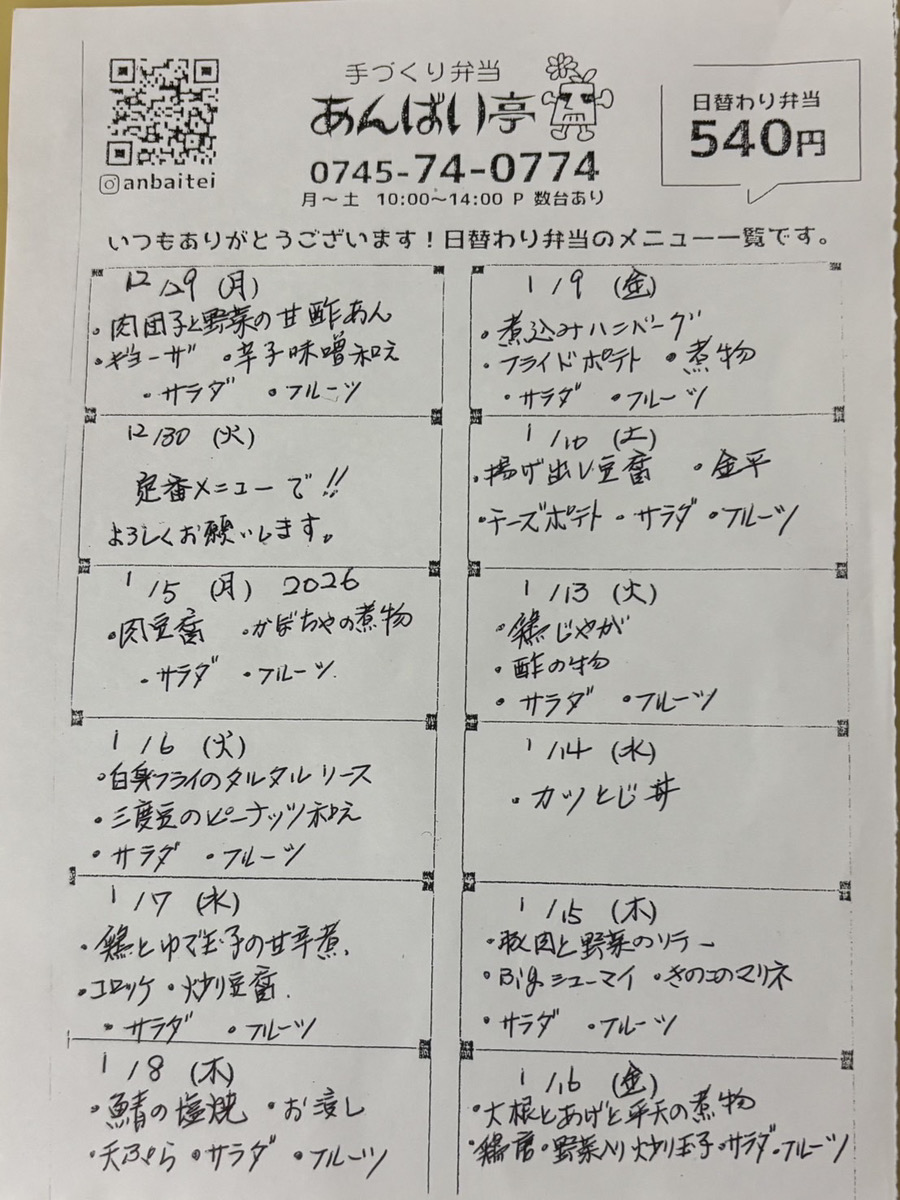 手づくり弁当
あんばい亭
0745-74-0774
月～土 10:00～14:00 P 数台あり
@anbaitei
日替わり弁当
540円
いつもありがとうございます！日替わり弁当のメニュー一覧です。
12/29 (月)
・肉団子と野菜の甘酢あん
・ギョーザ ・辛子味噌和え
・サラダ ・フルーツ
12/30 (火)
定番メニューで!!
よろしくお願いします。
1/5 (月) 2026
・肉豆腐 ・かぼちゃの煮物
・サラダ ・フルーツ
1/6 (火)
・白身フライのタルタルソース
・三度豆のピーナッツ和え
・サラダ ・フルーツ
1/7 (水)
・鶏とゆで玉子の甘辛煮
・コロッケ ・炒り豆腐
・サラダ ・フルーツ
1/8 (木)
・鯖の塩焼 ・お浸し
・天ぷら ・サラダ ・フルーツ
1/9 (金)
・煮込みハンバーグ
・フライドポテト ・煮物
・サラダ ・フルーツ
1/10 (土)
・揚げ出し豆腐 ・金平
・チーズポテト ・サラダ ・フルーツ
1/13 (火)
・鶏じゃが
・酢の物
・サラダ ・フルーツ
1/14 (水)
・カツとじ丼
1/15 (木)
・豚肉と野菜のソテー
・Bigシューマイ ・きのこのマリネ
・サラダ ・フルーツ
1/16 (金)
・大根とあげと平天の煮物
・野菜入り炒り玉子 ・サラダ ・フルーツ